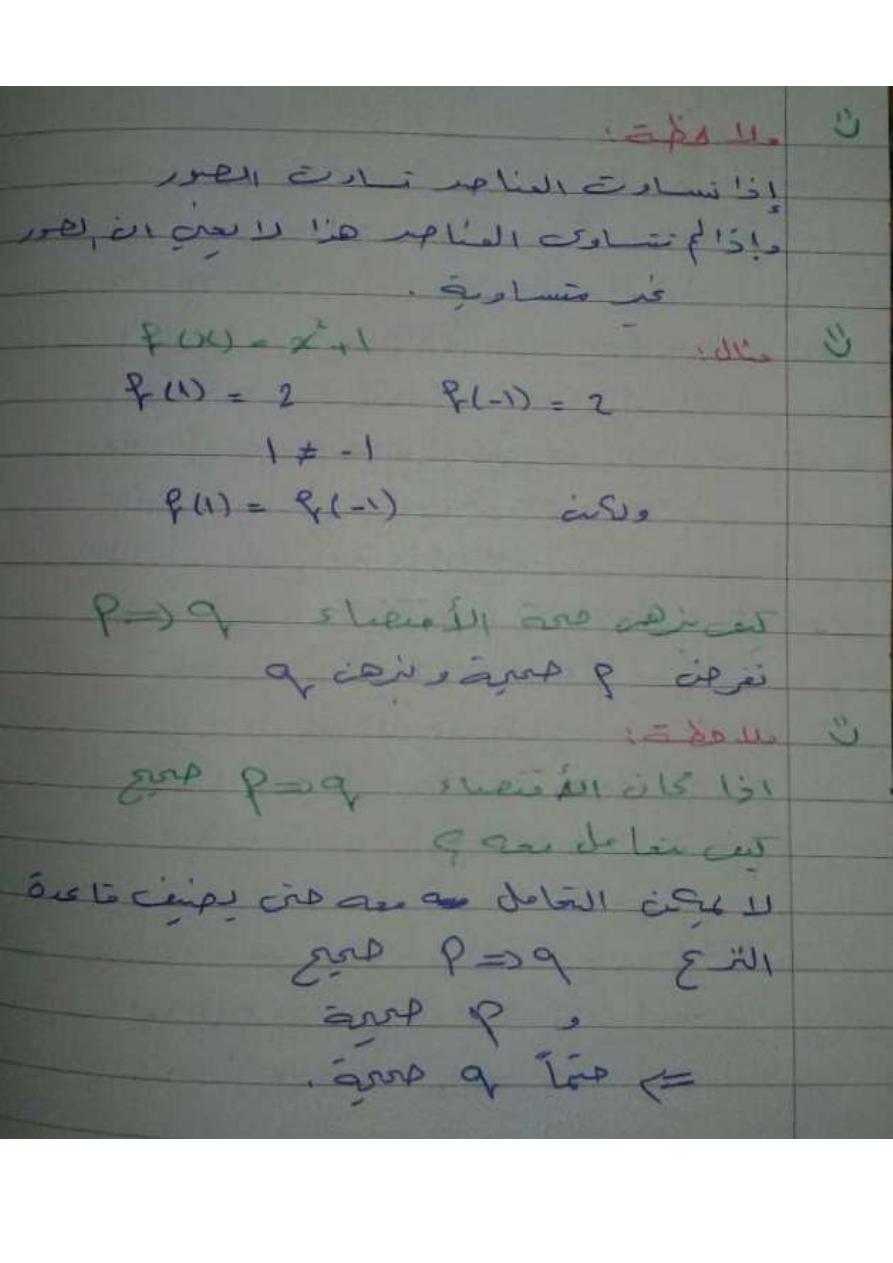 ملاحظة:
إذا تساوت العناصر تساوت الصور
وإذا لم تتساوى العناصر هذا لا يعني ان الصور
غير متساوية .
مثال: f(x) = x²+1
f(1) = 2 f(-1) = 2
1 ≠ -1
ولكن f(1) = f(-1)
كيف نبرهن صحة الأقتضاء P⇒q
نفرض P صحيحة ونبرهن q
ملاحظة:
اذا كان الأقتضاء P⇒q صحيح
كيف نتعامل معه ؟
لا يمكن التعامل معه حتى يضيف قاعدة
الترع P⇒q صحيح
و P صحيحة
⇐ حتماً q صحيحة .